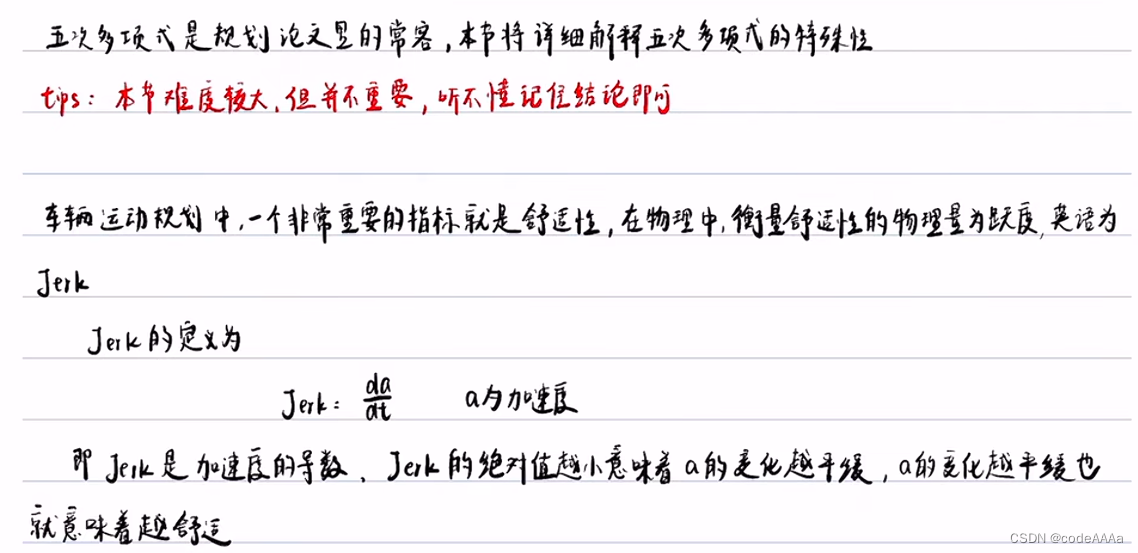 五次多项式是规划论文里的常客,本节将详细解释五次多项式的特殊性
tips: 本节难度较大,但并不重要,听不懂记住结论即可
车辆运动规划中,一个非常重要的指标就是舒适性,在物理中,衡量舒适性的物理量为跃度,英语为
Jerk
Jerk的定义为
Jerk: da/dt a为加速度
即Jerk是加速度的导数、Jerk的绝对值越小意味着a的变化越平缓,a的变化越平缓也
就意味着越舒适
CSDN @codeAAAa